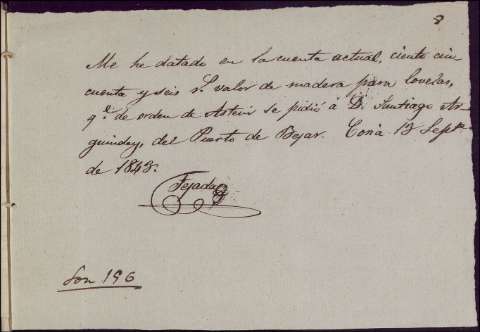 8
Me he datado en la cuenta actual, ciento cin
cuenta y seis rs. valor de madera para
qe. de orden de se pidió á D. Santiago Ar
del Puerto de Bejar. Coria 13 Sepbre
de 1843.
Tejada
Son 156